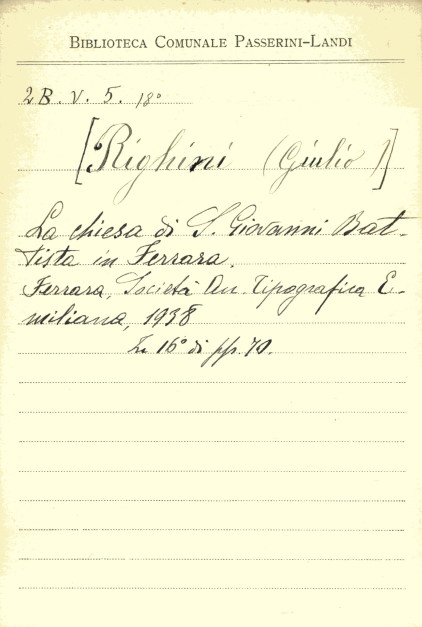 BIBLIOTECA COMUNALE PASSERINI-LANDI
2B. V. 5. 18°
[Righini (Giulio)]
La chiesa di S. Giovanni Bat-
tista in Ferrara.
Ferrara, Società An. Tipografica E-
miliana, 1938
In 16° di pp. 70.